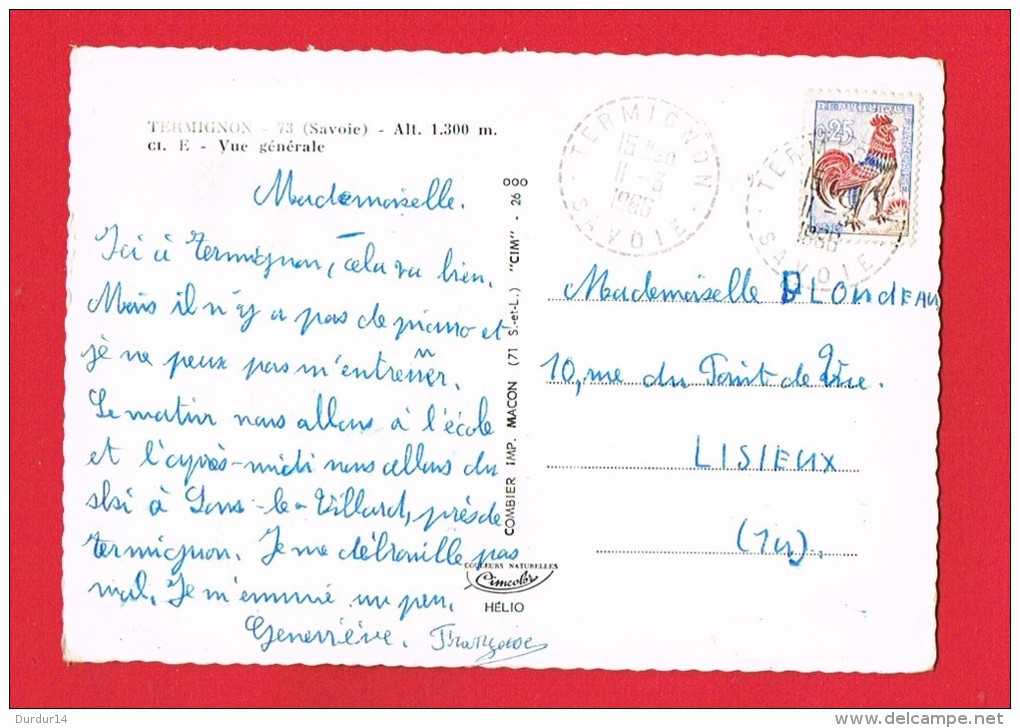 TERMIGNON - 73 (Savoie) - Alt. 1.300 m.
CI. E - Vue générale
Mademoiselle.
Ici à Termignon, cela va bien.
Mais il n'y a pas de piano et
je ne peux pas m'entrenner.
Le matin nous allons à l'école
et l'après-midi nous allons du
slsi à Sons-le-Villard, près de
Termignon. Je me débrouille pas
mal. Je m'ennuie un peu.
Geneviève. Françoise
COMBIER IMP. MACON (71 S.-et-L.) "CIM" - 26 000
COULEURS NATURELLES
Cimcolor
HÉLIO
TERMIGNON
15 H 30
11 - 3
1966
SAVOIE
0,25
TERM
15
11
1966
SAVOIE
Mademoiselle PLONdEAU
10, rue du
LISIEUX
(14).
Durdur14
delcampe.net